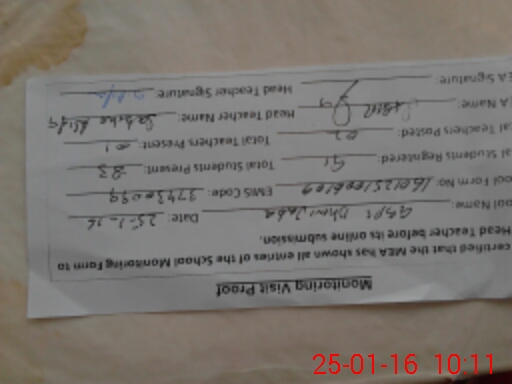 Monitoring Visit Proof
certified that the MEA has shown all entries of the School Monitoring Form to
Head Teacher before its online submission.
ool Name: GGPS Date: 25-1-16
ool Form No: EMIS Code: 37430099
al Students Registered: 91 Total Students Present: 83
tal Teachers Posted: 02 Total Teachers Present: 01
A Name: Head Teacher Name:
EA Signature: Head Teacher Signature:
25-01-16 10:11